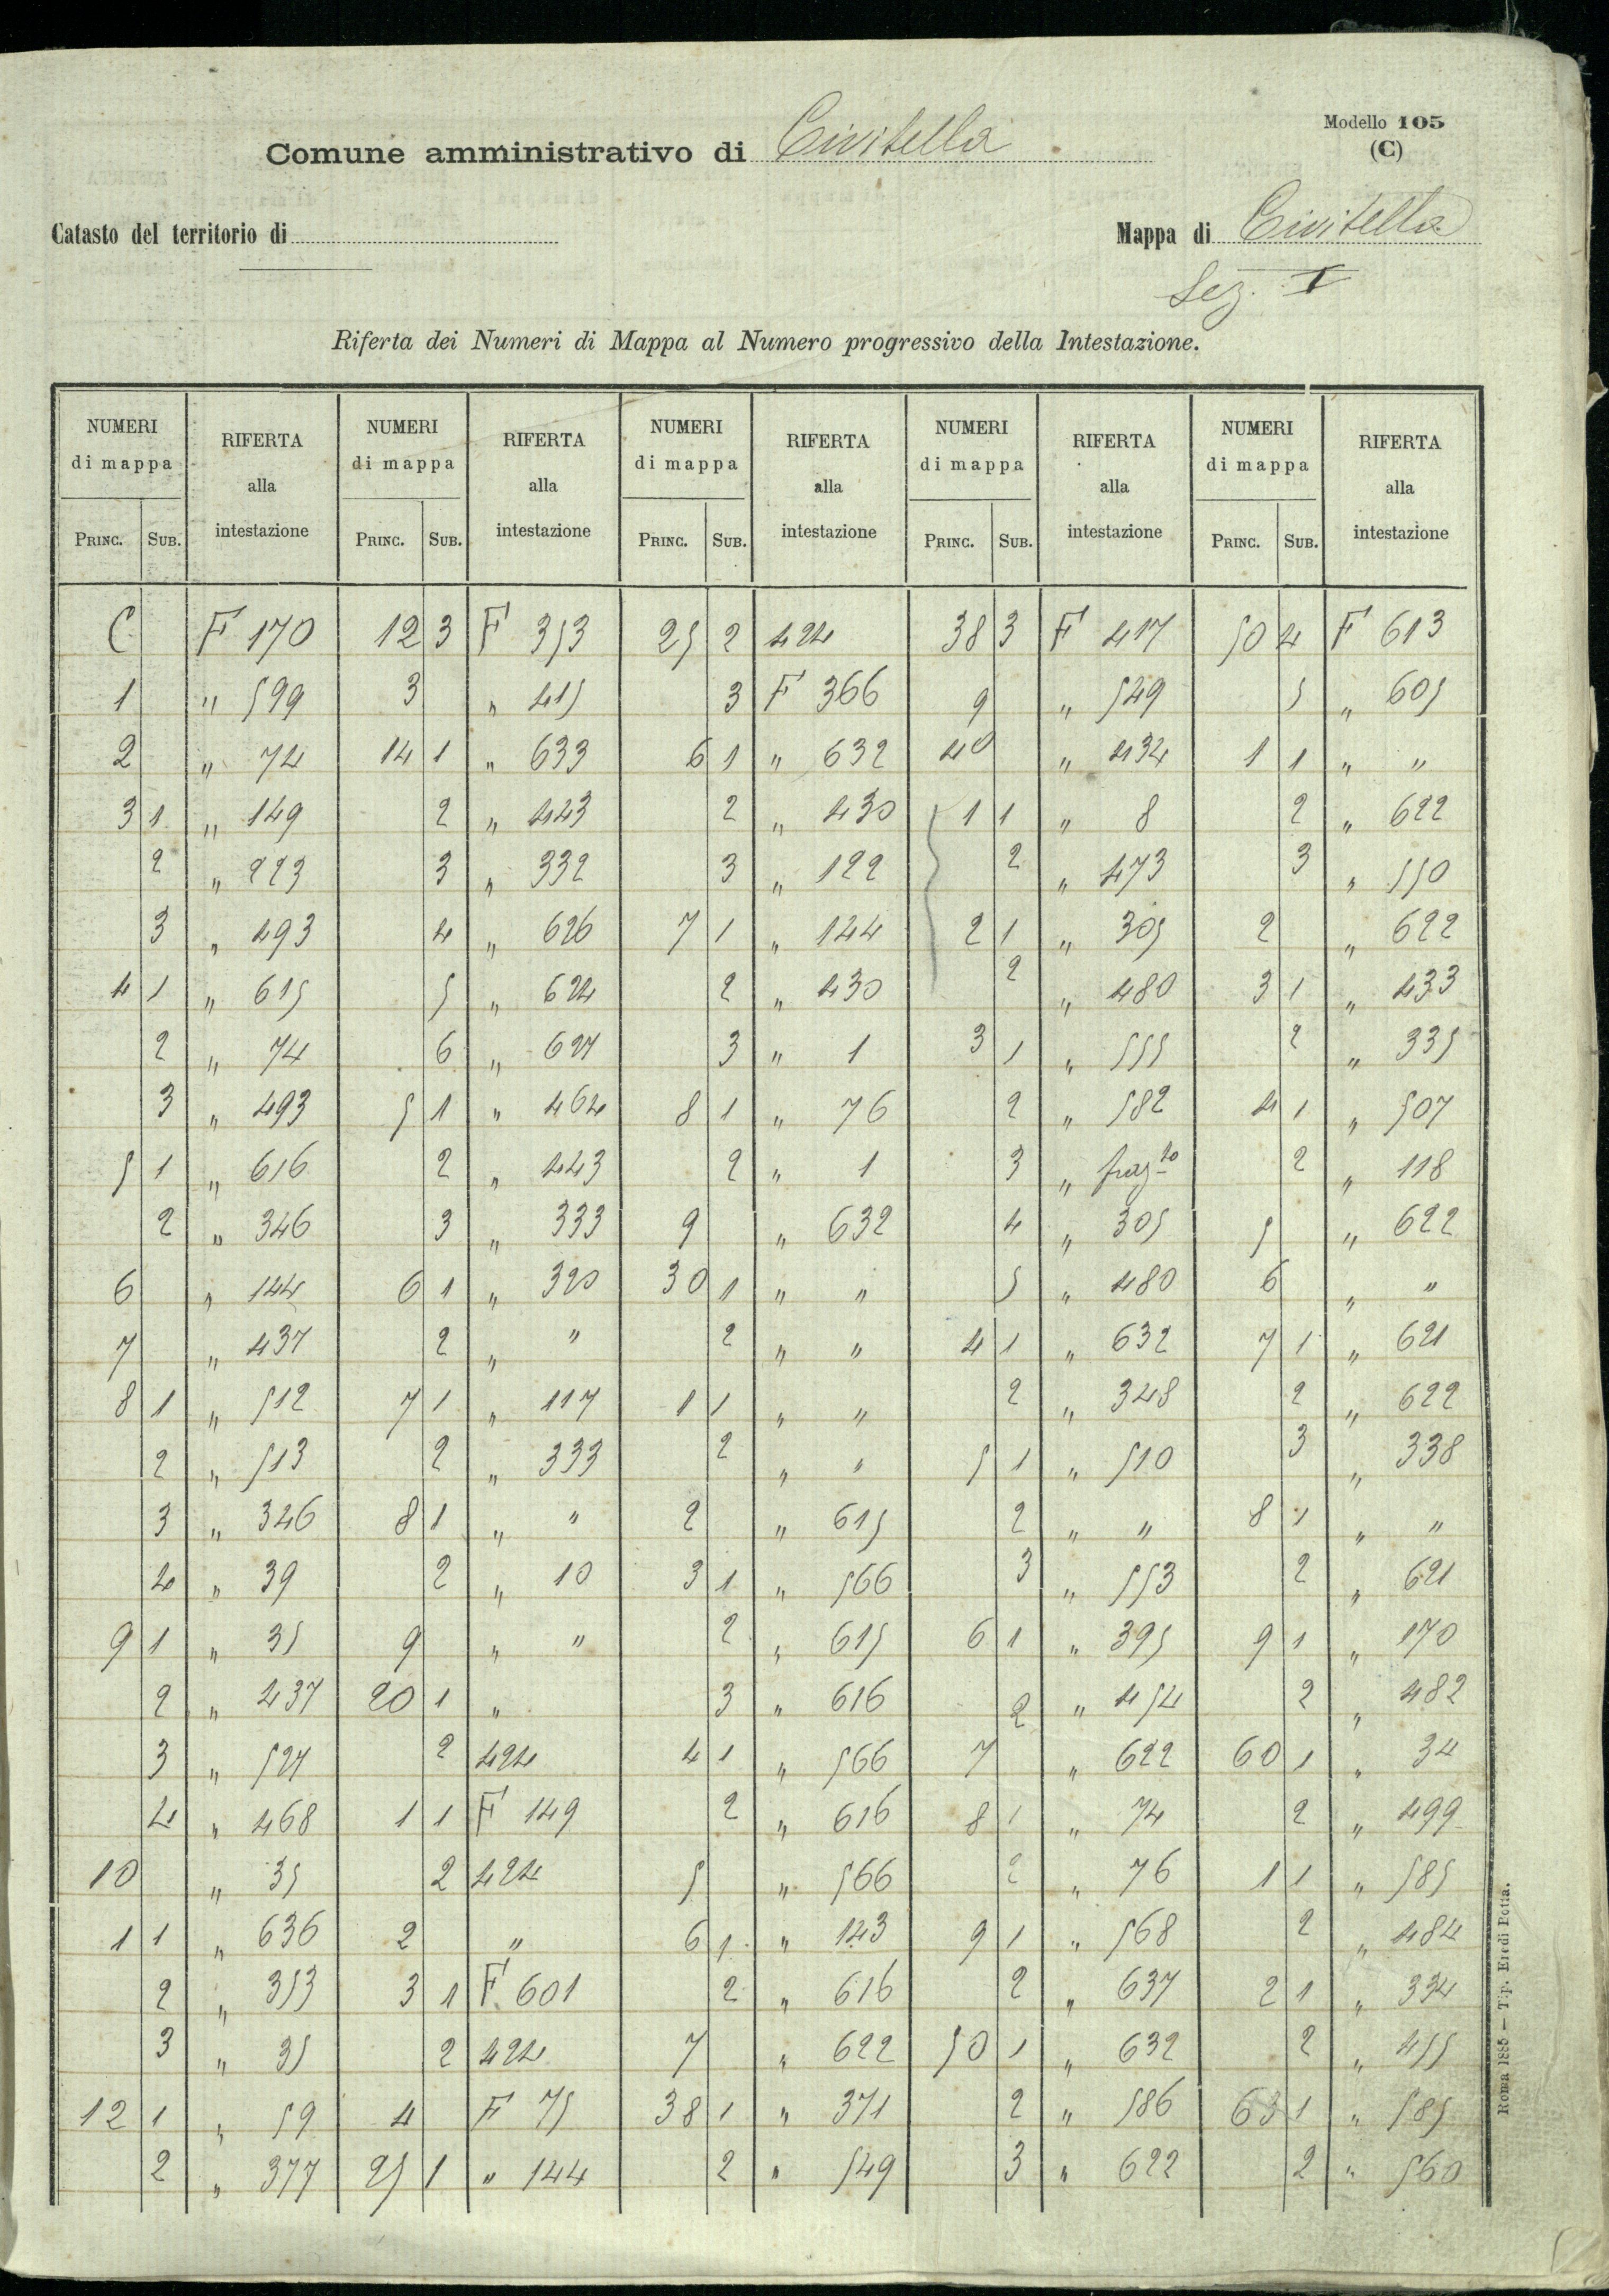 Modello 105
(C)
Comune amministrativo di Civitella
Catasto del territorio di
Mappa di Civitella
Sez. I
Riferta dei Numeri di Mappa al Numero progressivo della Intestazione.
NUMERI di mappa RIFERTA alla intestazione NUMERI di mappa RIFERTA alla intestazione NUMERI di mappa RIFERTA alla intestazione NUMERI di mappa RIFERTA alla intestazione NUMERI di mappa RIFERTA alla intestazione
PRINC. SUB. PRINC. SUB. PRINC. SUB. PRINC. SUB. PRINC. SUB.
C F 170 12 3 F 353 25 2 424 38 3 F 417 50 4 F 613
1 " 599 3 " 415 3 F 366 9 " 549 5 " 605
2 " 74 14 1 " 633 6 1 " 632 40 " 434 1 1 " "
3 1 " 149 2 " 443 2 " 430 1 1 " 8 2 " 622
2 " 223 3 " 332 3 " 122 2 " 473 3 " 550
3 " 493 4 " 626 7 1 " 144 2 1 " 305 2 " 622
4 1 " 615 5 " 624 2 " 430 2 " 480 3 1 " 433
2 " 74 6 " 627 3 " 1 3 1 " 555 2 " 335
3 " 493 5 1 " 464 8 1 " 76 2 " 582 4 1 " 507
5 1 " 616 2 " 443 2 " 1 3 " fraz to 2 " 118
2 " 346 3 " 333 9 " 632 4 " 305 5 " 622
6 " 144 6 1 " 320 30 1 " " 5 " 480 6 " "
7 " 437 2 " " 2 " " 4 1 " 632 7 1 " 621
8 1 " 512 7 1 " 117 1 1 " " 2 " 348 2 " 622
2 " 513 2 " 333 2 " " 5 1 " 510 3 " 338
3 " 346 8 1 " " 2 " 615 2 " " 8 1 " "
4 " 39 2 " 10 3 1 " 566 3 " 553 2 " 621
9 1 " 35 9 " " 2 " 615 6 1 " 395 9 1 " 170
2 " 437 20 1 " 3 " 616 2 " 454 2 " 482
3 " 527 2 424 4 1 " 566 7 " 622 60 1 " 34
4 " 468 1 1 F 149 2 " 616 8 1 " 74 2 " 499
10 " 35 2 424 5 " 566 2 " 76 1 1 " 585
1 1 " 636 2 " 6 1 " 143 9 1 " 568 2 " 484
2 " 353 3 1 F 601 2 " 616 2 " 637 2 1 " 334
3 " 35 2 424 7 " 622 50 1 " 632 2 " 455
12 1 " 59 4 F 75 38 1 " 371 2 " 586 63 1 " 585
2 " 377 25 1 " 144 2 " 549 3 " 622 2 " 560
Roma 1885 — Tip. Eredi Botta.